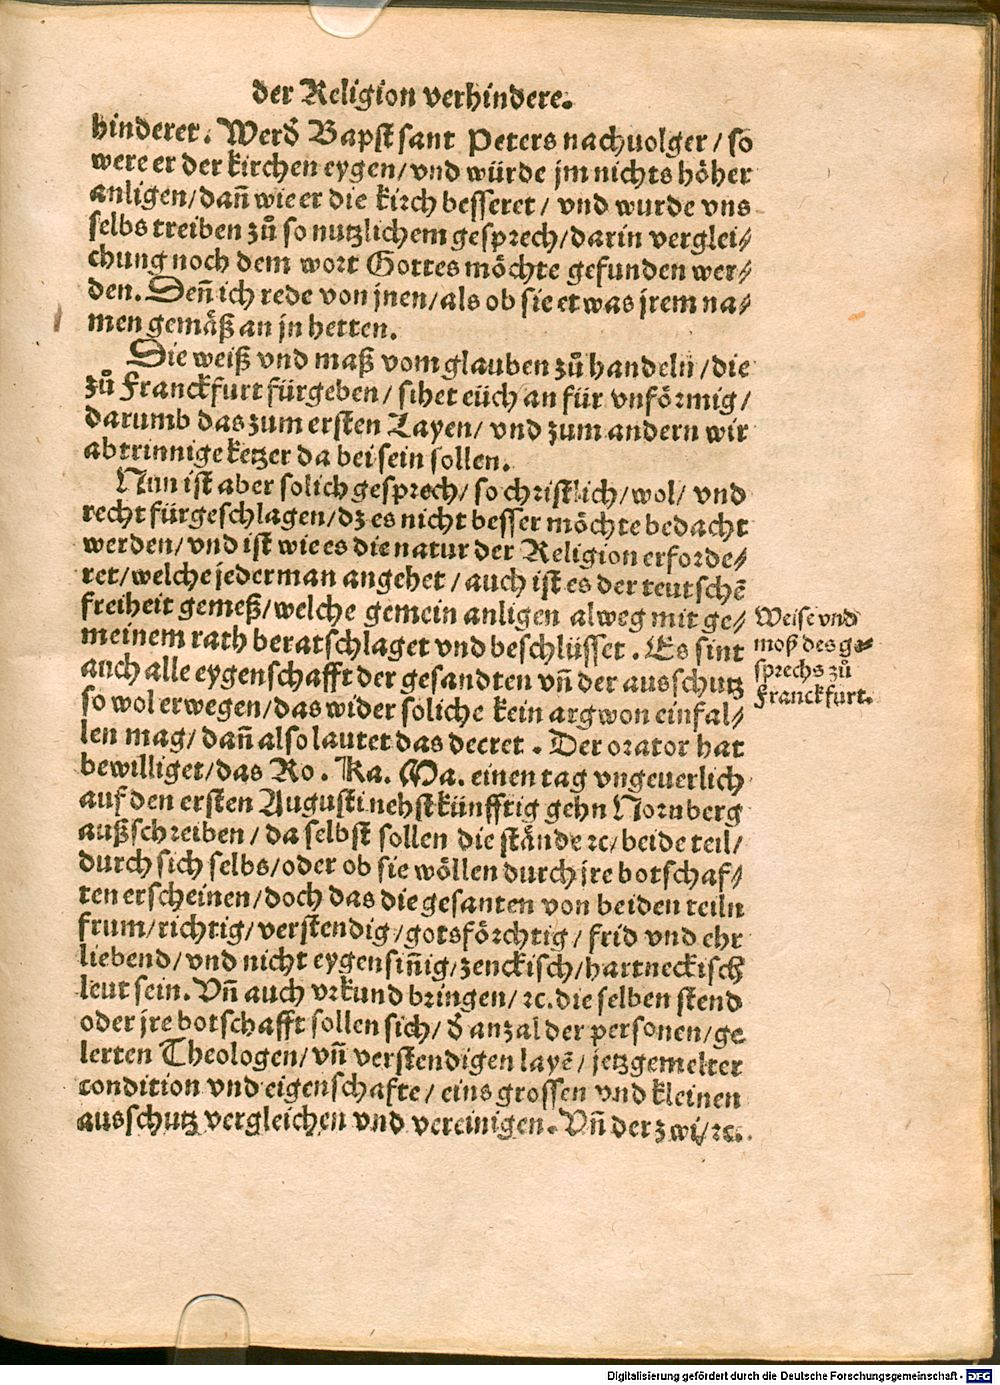 der Religion verhindere.
hinderet. Werd̄ Bapst sant Peters nachuolger / so
were er der kirchen eygen / vnd würde jm nichts höher
anligen / dañ wie er die kirch besseret / vnd wurde vns
selbs treiben zů so nutzlichem gesprech / darin verglei⸗
chung noch dem wort Gottes möchte gefunden wer⸗
den. Deñ ich rede von jnen / als ob sie etwas jrem na⸗
men gemäß an jn hetten.
Die weiß vnd maß vom glauben zů handeln / die
zů Franckfurt fürgeben / sihet eüch an für vnförmig /
darumb das zum ersten Layen / vnd zum andern wir
abtrinnige ketzer da bei sein sollen.
Nun ist aber solich gesprech / so christlich / wol / vnd
recht fürgeschlagen / dz es nicht besser möchte bedacht
werden / vnd ist wie es die natur der Religion erforde⸗
ret / welche jederman angehet / auch ist es der teutschē
freiheit gemeß / welche gemein anligen alweg mit ge⸗
meinem rath beratschlaget vnd beschlüsset. Es sint
auch alle eygenschafft der gesandten vñ der ausschutz
so wol erwegen / das wider soliche kein argwon einfal⸗
len mag / dañ also lautet das decret. Der orator hat
bewilliget / das Ro. Ka. Ma. einen tag vngeuerlich
auf den ersten Augusti nehstkünfftig gehn Nornberg
außschreiben / da selbst sollen die stände ꝛc / beide teil /
durch sich selbs / oder ob sie wöllen durch jre botschaf⸗
ten erscheinen / doch das die gesanten von beiden teiln
frum / richtig / verstendig / gotsförchtig / frid vnd ehr
liebend / vnd nicht eygensiñig / zenckisch / hartneckisch
leut sein. Vñ auch vrkund bringen / ꝛc. die selben stend
oder jre botschafft sollen sich / d̄ anzal der personen / ge
lerten Theologen / vñ verstendigen layē / jetzgemelter
condition vnd eigenschafte / eins grossen vnd kleinen
ausschutz vergleichen vnd vereinigen. Vñ der zwi / ꝛc.
Weise vnd
moß des ge⸗
sprechs zů
Franckfurt.
Digitalisierung gefördert durch die Deutsche Forschungsgemeinschaft - DFG